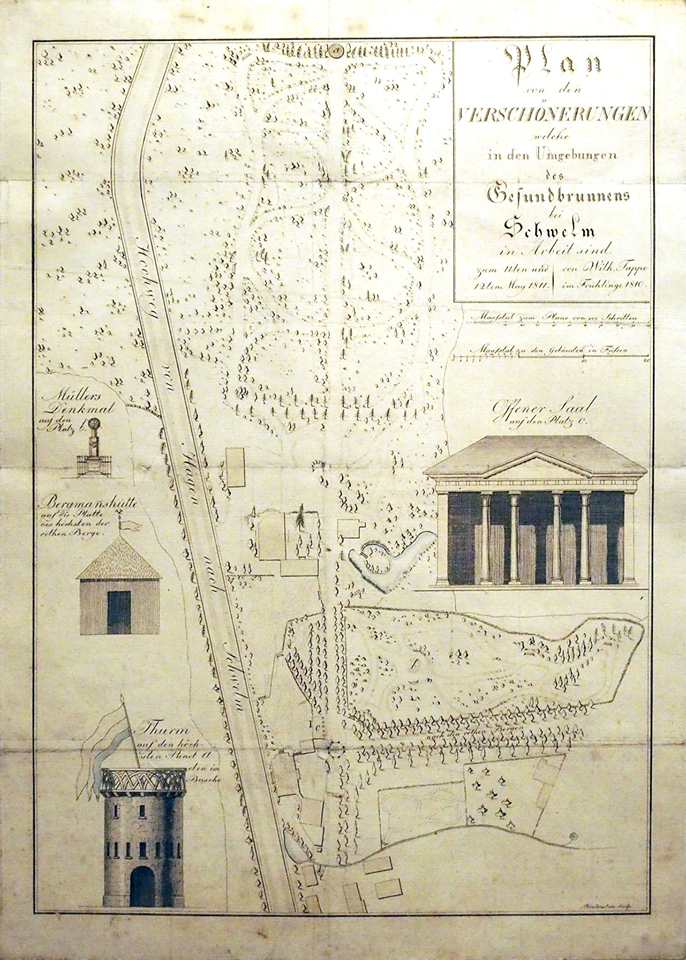 Plan
von den
VERSCHÖNERUNGEN
welche
in den Umgebungen
des
Gesundbrunnens
bei
Schwelm
in Arbeit sind
zum 11ten und
12ten May 1811.
von Wilh. Tappe
im Frühlinge 1810.
Maasstab zum Plane von 100 Schritten
Maasstab zu den Gebäuden in Füssen
Heerweg von Hagen nach Schwelm
Müllers
Denkmal
auf den
Platz b.
Offener Saal
auf den Platz C.
Bergmanshütte
auf die Platte
des höchsten der
rothen Berge.
Thurm
auf den höch-
sten Punct A.
oben im
Busche